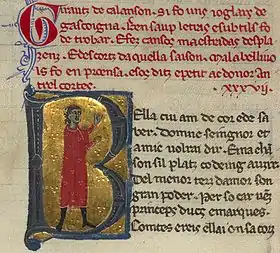 Giraut de calanson. si fo uns ioglars de
gascoigna. Ben saup letras esubtils fo
de trobar. Efez cansos maestridas desplazenz.
Edescortz daquella saison. Malabelliuols
fo en proensa. esos ditz epetit ac donor
entrels cortes.
XXXVIJ.
Bella cui am de cor ede sa
ber. Domne seingnor et
amic uolrai dir. Ema chan
son sil platz codeing auzir
Del menor terz damor son
gran poder. Per so car uenz
princeps ducs emarques.
Comtes ereis ellai on sa cortz